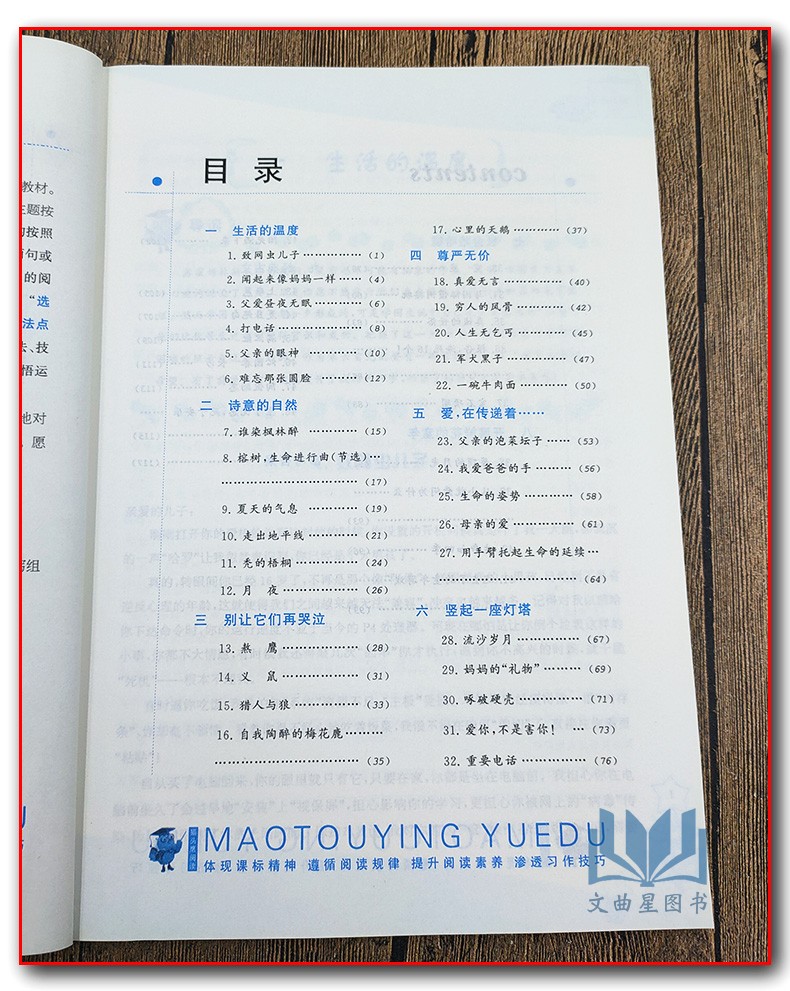 教材。
主题按
句按照
句或
的阅
“选
法点
、技
悟运
他对
，愿
组
目 录
contents
一 生活的温度
1. 致网虫儿子 …………… (1)
2. 闻起来像妈妈一样 ……… (4)
3. 父爱昼夜无眠 ………… (6)
4. 打电话 ……………… (8)
5. 父亲的眼神 ………… (10)
6. 难忘那张圆脸 ……… (12)
二 诗意的自然
7. 谁染枫林醉 ………… (15)
8. 榕树,生命进行曲(节选) …
…………………………… (17)
9. 夏天的气息 ………… (19)
10. 走出地平线 ………… (21)
11. 秃的梧桐 …………… (24)
12. 月 夜 ……………… (26)
三 别让它们再哭泣
13. 熬 鹰 ……………… (28)
14. 义 鼠 ……………… (31)
15. 猎人与狼 …………… (33)
16. 自我陶醉的梅花鹿………
…………………………… (35)
17. 心里的天鹅 ………… (37)
四 尊严无价
18. 真爱无言 …………… (40)
19. 穷人的风骨 ………… (42)
20. 人生无乞丐 ………… (45)
21. 军犬黑子 …………… (47)
22. 一碗牛肉面 ………… (50)
五 爱,在传递着……
23. 父亲的泡菜坛子 …… (53)
24. 我爱爸爸的手 ……… (56)
25. 生命的姿势 ………… (58)
26. 母亲的爱 …………… (61)
27. 用手臂托起生命的延续 …
…………………………… (64)
六 竖起一座灯塔
28. 流沙岁月 …………… (67)
29. 妈妈的“礼物” ……… (69)
30. 啄破硬壳 …………… (71)
31. 爱你,不是害你! … (73)
32. 重要电话 …………… (76)
猫头鹰阅读
MAOTOUYING YUEDU
体现课标精神 遵循阅读规律 提升阅读素养 渗透习作技巧
文曲星图书